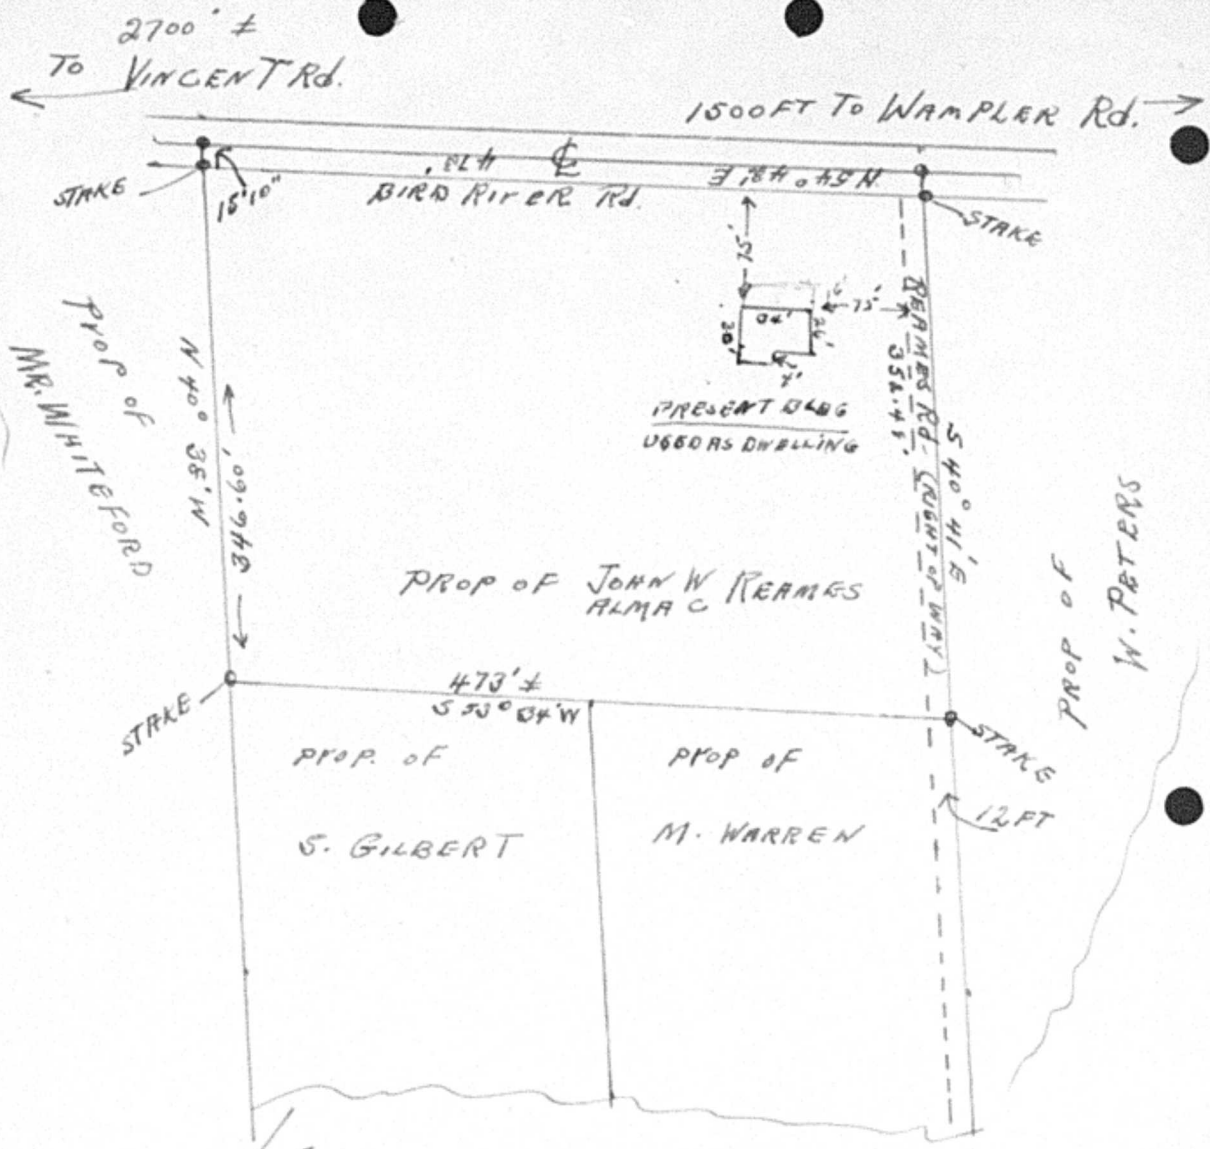 2700' ±
To VINCENT Rd.
1500FT TO WAMPLER Rd.
STAKE
15'10"
473'
BIRD RIVER Rd.
STAKE
75'
75'
24'
PRESENT BLDG
USED AS DWELLING
REAMES Rd. (RIGHT OF WAY)
S 40° 41' E
Prop of
MR. WHITEFORD
N 40° 35' W
346.60'
PROP OF JOHN W REAMES
ALMA C
PROP OF
W. PETERS
STAKE
473' ±
STAKE
Prop. of
S. GILBERT
Prop of
M. WARREN
12FT